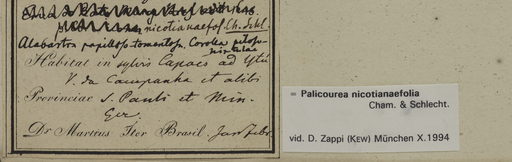 nicotianaefol. Ch. Schl.
Alabastra papilloso-tomentosa. Corolla
Habitat in sylvis Capaes ad Ytú
V. da Campanha et aliis
Provinciae S. Pauli et Min.
Ger.
Dr. Martius Iter Brasil. Jan Febr.
= Palicourea nicotianaefolia
Cham. & Schlecht.
vid. D. Zappi (KEW) München X.1994